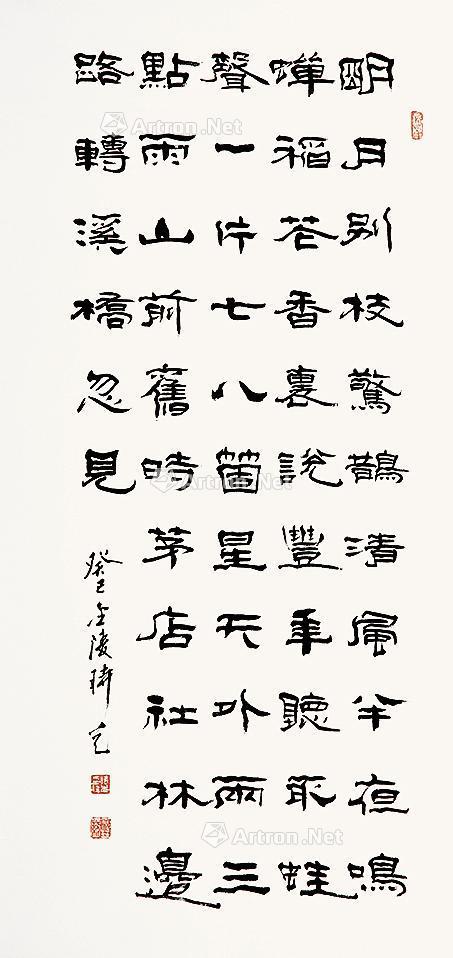 明月別枝驚鵲清風半夜鳴
蟬稻花香裏說豐年聽取蛙
聲一片七八箇星天外兩三
點雨山前舊時茅店社林邊
路轉溪橋忽見
癸巳金陵
Artron.Net
Artron.Net
Artron.Net
Artron.Net